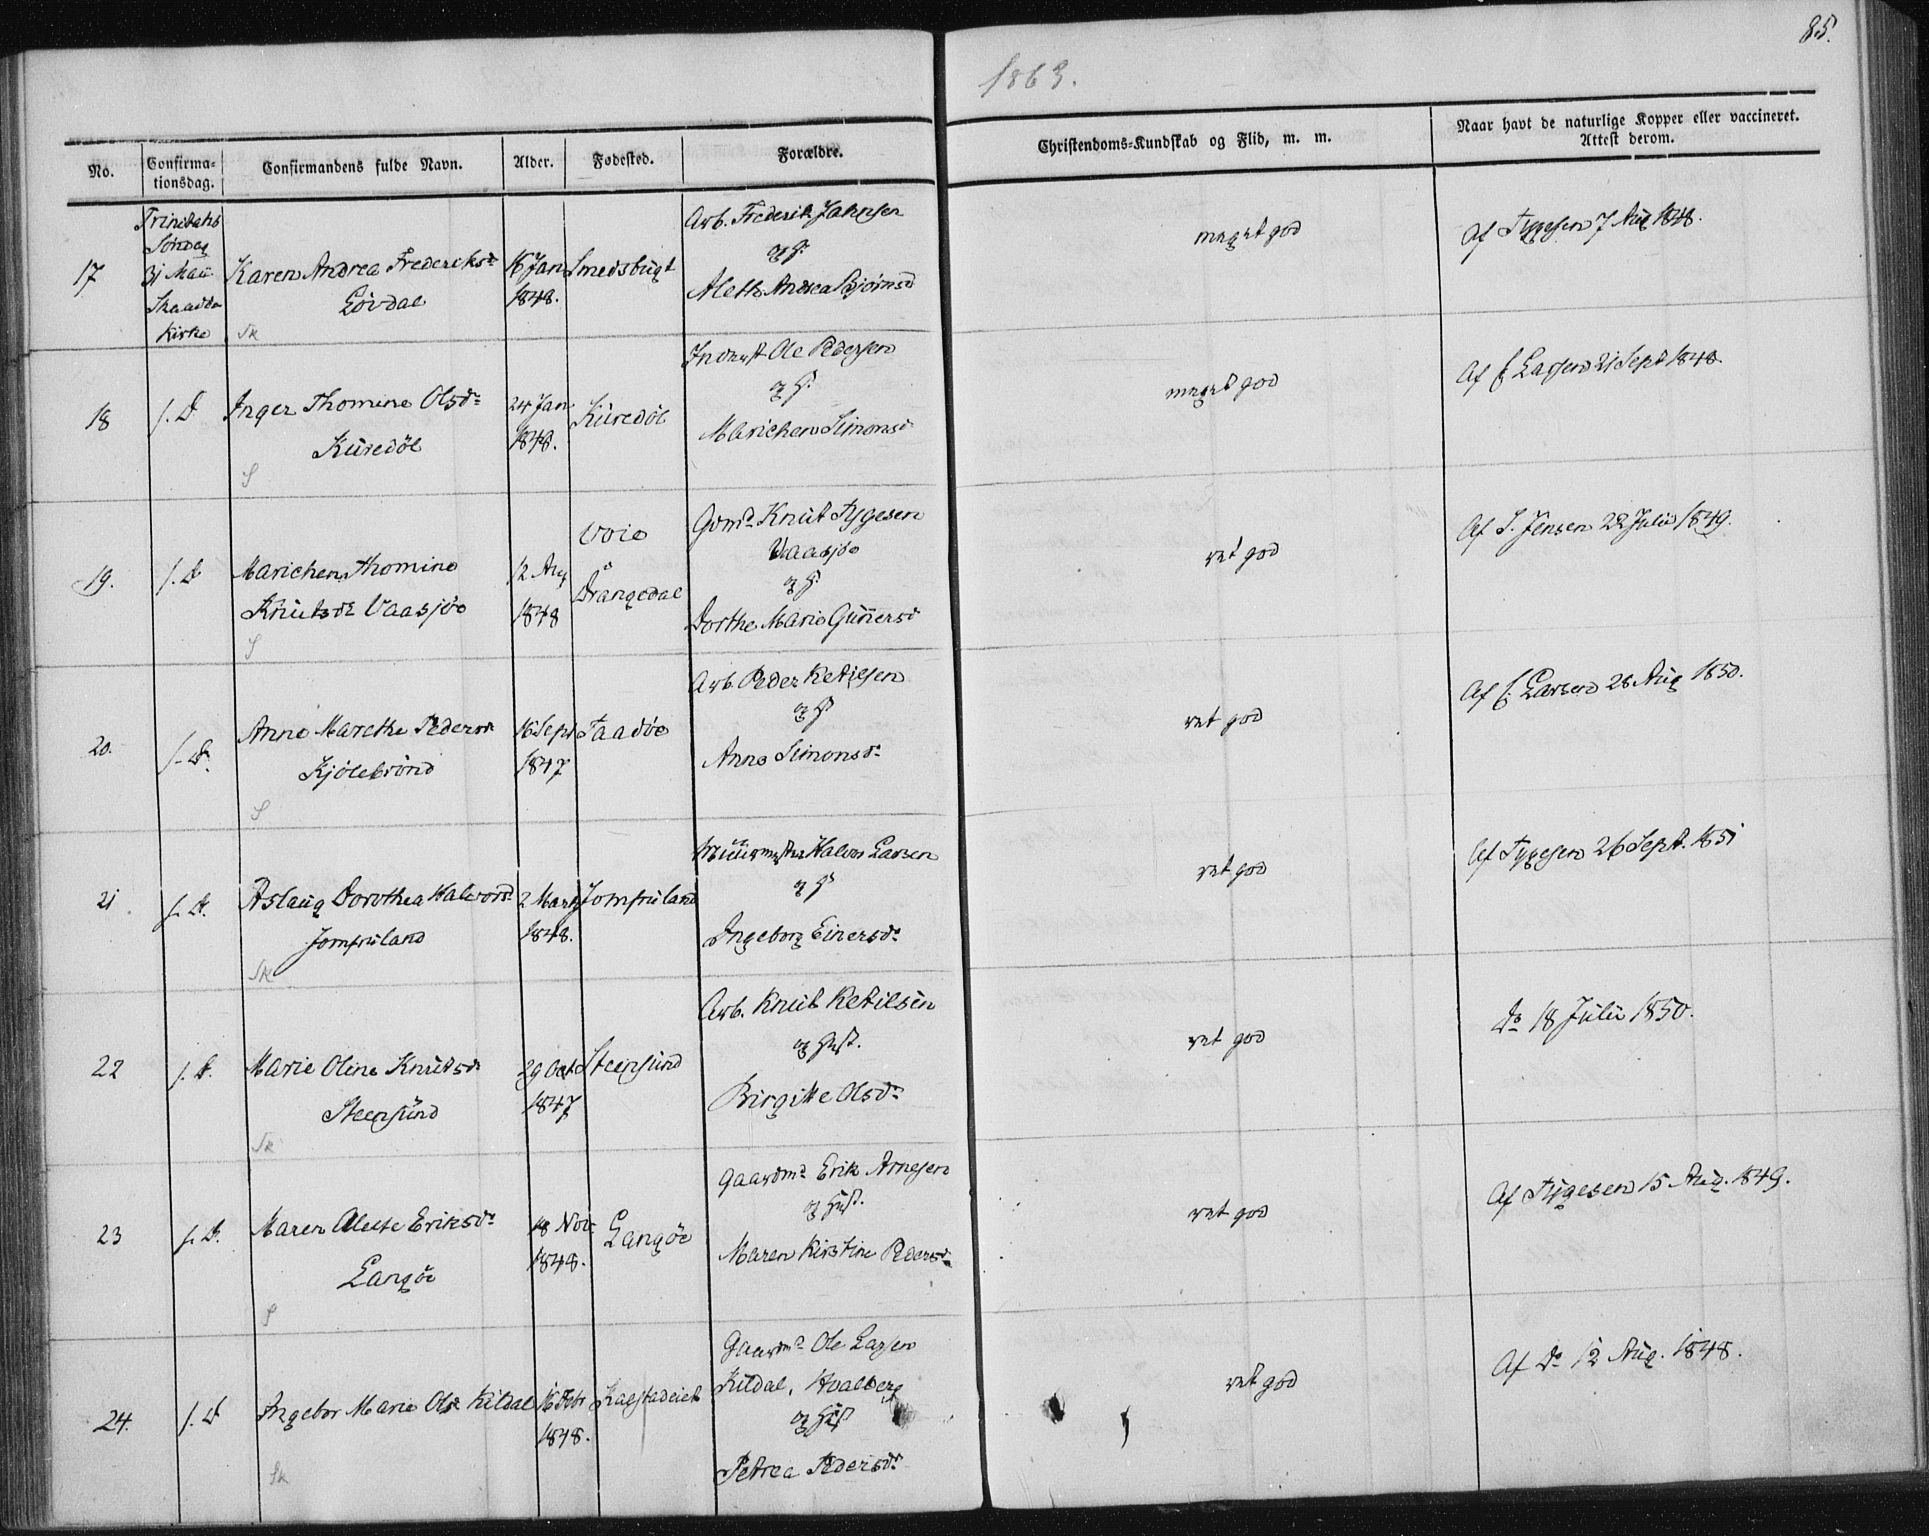 85.
1863.
No.
Confirma-
tionsdag.
Confirmandens fulde Navn.
Alder.
Fødested.
Forældre.
Christendoms-Kundskab og Flid, m. m.
Naar havt de naturlige Kopper eller vaccineret.
Attest derom.
17
Trinitatis
Søndag
31 Mai
Skaadø
Kirke
Karen Andrea Fredriksdr
Løvdal
Sk
16 Jan
1848.
Smedsbugt
Arb. Frederik Jahnsen
og H.
Aleth Andrea Bjørnsd
meget god
Af Tygesen 7 Aug 1848.
18
s. D
Inger Thomine Olsdr
Kuredøl
S
24 Jan
1848.
Kuredøl
Inderst Ole Pedersen
og H.
Marichen Simonsd
meget god
Af Larsen 21 Sept 1848.
19.
s. D
Marichen Thomine
Knutsdr Vaasjøe
S
12 Aug
1848
Voie
Drangedal
Gdmd Knut Tygesen
Vaasjøe
og H.
Dorthe Marie Gunnersd
ret god
Af S. Jensen 22 Juli 1849.
20.
s. D.
Anne Marethe Pedersdr
Kjølebrønd
S
16 Sept
1847
Taadøe
Arb. Peder Ketilsen
og H
Anne Simonsdr
ret god
Af Larsen 28 Aug 1850.
21
s. D.
Aslaug Dorothea Halvorsd
Jomfruland
Sk
2 Marts
1848.
Jomfruland
Halvor Larsen
og H
Ingeborg Einersdr
ret god
Af Tygesen 26 Sept. 1851
22
s. D.
Marie Oline Knutsdr
Steensund
Sk
29 Oct
1847
Steensund
Arb. Knut Ketilsen
og Hust.
Birgitte Olsdr
ret god
do 18 Juli 1850.
23
s. D.
Maren Aleste Eriksdr
Langøe
S
18 Nov
1848.
Langøe
Gaardmd Erik Arnesen
og Hust.
Maren Kirstine Pedersdr
ret god
Af Tygesen 15 Aug. 1849.
24.
s. D
Ingebor Marie Olsdr Kildal
Sk
16 Febr
1848.
Gaardmd Ole Larsen
Kildal, Hvalberg
og Hust
Petrea Pedersdr
ret god
Af do 12 Aug. 1848.